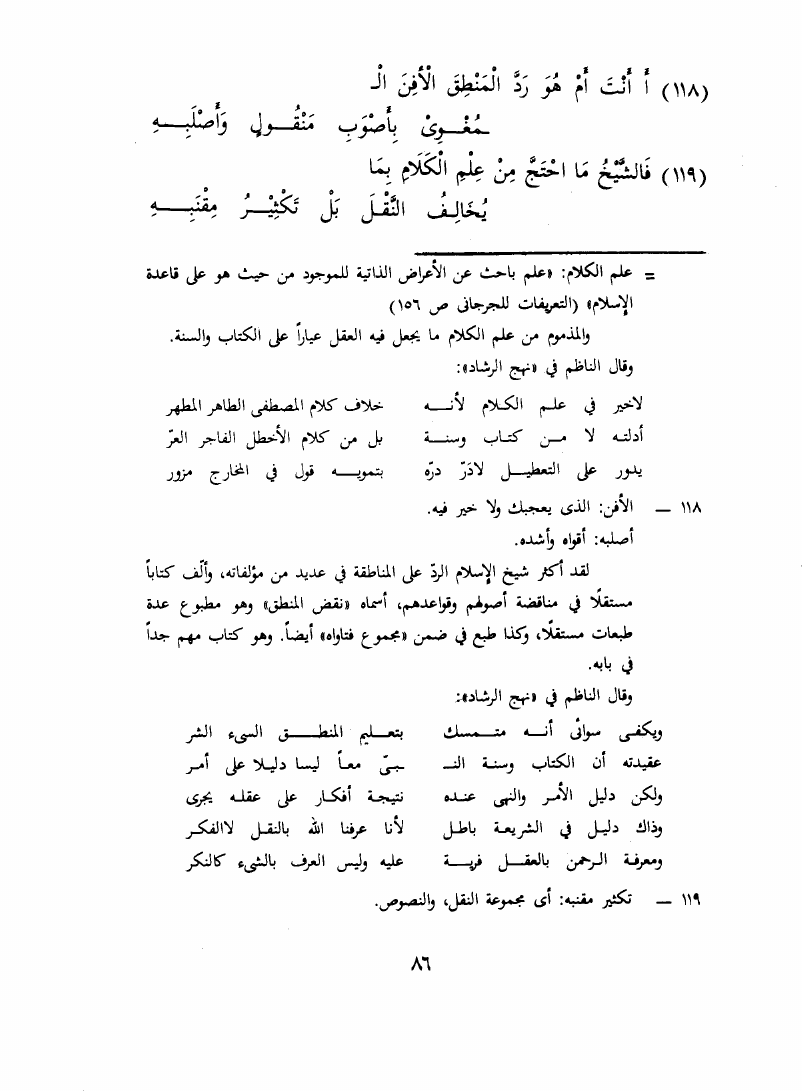 (١١٨) أ أَنْتَ أَمْ هُوَ رَدَّ الْمَنْطِقَ الْأَفِنَ الْـ
ـمُغْـوِيْ بِأَصْوَبِ مَنْقُـولٍ وَأَصْلَبِـهِ
(١١٩) فَالشَّيْخُ مَا احْتَجَّ مِنْ عِلْمِ الْكَلَامِ بِمَا
يُخَالِـفُ النَّقْـلَ بَلْ تَكْثِيْـرُ مِقْنَبِـهِ
= علم الكلام: «علم باحث عن الأعراض الذاتية للموجود من حيث هو على قاعدة
الإسلام» (التعريفات للجرجانى ص ١٥٦)
والمذموم من علم الكلام ما يجعل فيه العقل عياراً على الكتاب والسنة.
وقال الناظم في «نهج الرشاد»:
لاخير في علـم الكـلام لأنـه خلاف كلام المصطفى الطاهر المطهر
أدلتـه لا مـن كتـاب وسنـة بل من كلام الأخطل الفاجر العرّ
يدور على التعطيـل لادَرّ درّه بتمويـه قول في المخارج مزور
١١٨ — الأفن: الذى يعجبك ولا خير فيه.
أصلبه: أقواه وأشده.
لقد أكثر شيخ الإسلام الردّ على المناطقة في عديد من مؤلفاته، وألّف كتاباً
مستقلًا في مناقضة أصولهم وقواعدهم، أسماه «نقض المنطق» وهو مطبوع عدة
طبعات مستقلًا، وكذا طبع في ضمن «مجموع فتاواه» أيضاً. وهو كتاب مهم جداً
في بابه.
وقال الناظم في «نهج الرشاد»:
ويكفـى سوائى أنـه متـمسك بتعـليم المنطـق السيء الشر
عقيدته أن الكتاب وسنة النـ ـبـيّ معـاً ليسا دليـلا على أمـر
ولكن دليل الأمـر والنهى عنـده نتيجـة أفكـار على عقلـه يجرى
وذاك دليـل في الشريعـة باطـل لأنا عرفنا الله بالنقـل لاالفكـر
ومعرفـة الرحمن بالعقـل فريـة عليه وليس العرف بالشيء كالنكر
١١٩ — تكثير مقنبه: أى مجموعة النقل، والنصوص.
٨٦